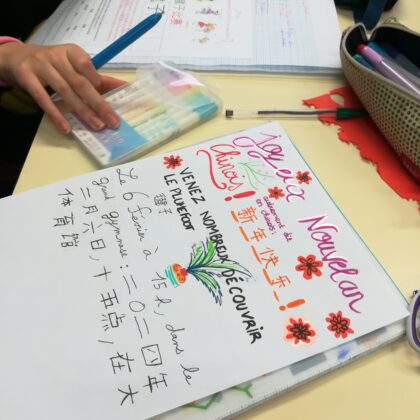 Joyeux Nouvelan
Chinois!
autrement dit
en chinois :
新年快乐!
VENEZ NOMBREUX DÉCOUVRIR
LE PLUMFOOT
毽子
Le 6 Fevrier à 15h, dans le
grand gymnase : 二〇二四年
二月六日,十五点,在大
体育馆